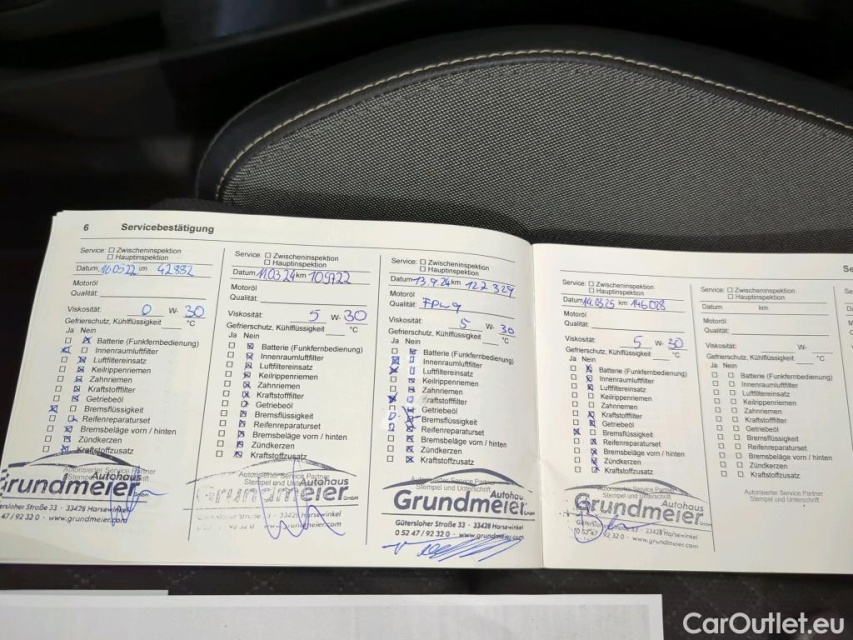 6 Servicebestätigung
Service: ☐ Zwischeninspektion
☐ Hauptinspektion
Datum 160522 km 42882
Motoröl
Qualität:
Viskosität: 0 W- 30
Gefrierschutz, Kühlflüssigkeit °C
Ja Nein
Batterie (Funkfernbedienung)
Innenraumluftfilter
Luftfiltereinsatz
Keilrippenriemen
Zahnriemen
Kraftstofffilter
Getriebeöl
Bremsflüssigkeit
Reifenreparaturset
Bremsbeläge vorn / hinten
Zündkerzen
Kraftstoffzusatz
Autorisierter Service Partner
Autohaus
Grundmeier
Straße 33 · 33428 Harsewinkel
47 / 92 32 0 · www.grundmeier.com
Service: ☐ Zwischeninspektion
☐ Hauptinspektion
Datum 11.03.24 km 109722
Motoröl
Qualität:
Viskosität: 5 W- 30
Gefrierschutz, Kühlflüssigkeit °C
Ja Nein
Batterie (Funkfernbedienung)
Innenraumluftfilter
Luftfiltereinsatz
Keilrippenriemen
Zahnriemen
Kraftstofffilter
Getriebeöl
Bremsflüssigkeit
Reifenreparaturset
Bremsbeläge vorn / hinten
Zündkerzen
Kraftstoffzusatz
Autorisierter Service Partner
Stempel und Unterschrift
Autohaus
Grundmeier
33428 Harsewinkel
Service: ☐ Zwischeninspektion
☐ Hauptinspektion
Datum 13.9.24 km 122329
Motoröl
Qualität:
Viskosität: 5 W- 30
Gefrierschutz, Kühlflüssigkeit °C
Ja Nein
Batterie (Funkfernbedienung)
Innenraumluftfilter
Luftfiltereinsatz
Keilrippenriemen
Zahnriemen
Kraftstofffilter
Getriebeöl
Bremsflüssigkeit
Reifenreparaturset
Bremsbeläge vorn / hinten
Zündkerzen
Kraftstoffzusatz
Autorisierter Service Partner
Stempel und Unterschrift
Autohaus
Grundmeier GmbH
Gütersloher Straße 33 · 33428 Harsewinkel
0 52 47 / 92 32 0 · www.grundmeier.com
Service: ☐ Zwischeninspektion
☐ Hauptinspektion
Datum 14.03.25 km 146088
Motoröl
Qualität:
Viskosität: 5 W- 30
Gefrierschutz, Kühlflüssigkeit °C
Ja Nein
Batterie (Funkfernbedienung)
Innenraumluftfilter
Luftfiltereinsatz
Keilrippenriemen
Zahnriemen
Kraftstofffilter
Getriebeöl
Bremsflüssigkeit
Reifenreparaturset
Bremsbeläge vorn / hinten
Zündkerzen
Kraftstoffzusatz
Autorisierter Service Partner
Stempel und Unterschrift
Autohaus
Grundmeier GmbH
33428 Harsewinkel
www.grundmeier.com
Service: ☐ Zwischeninspektion
☐ Hauptinspektion
Datum km
Motoröl
Qualität:
Viskosität: W-
Gefrierschutz, Kühlflüssigkeit °C
Ja Nein
Batterie (Funkfernbedienung)
Innenraumluftfilter
Luftfiltereinsatz
Keilrippenriemen
Zahnriemen
Kraftstofffilter
Getriebeöl
Bremsflüssigkeit
Reifenreparaturset
Bremsbeläge vorn / hinten
Zündkerzen
Kraftstoffzusatz
Autorisierter Service Partner
Stempel und Unterschrift
Se
CarOutlet.eu